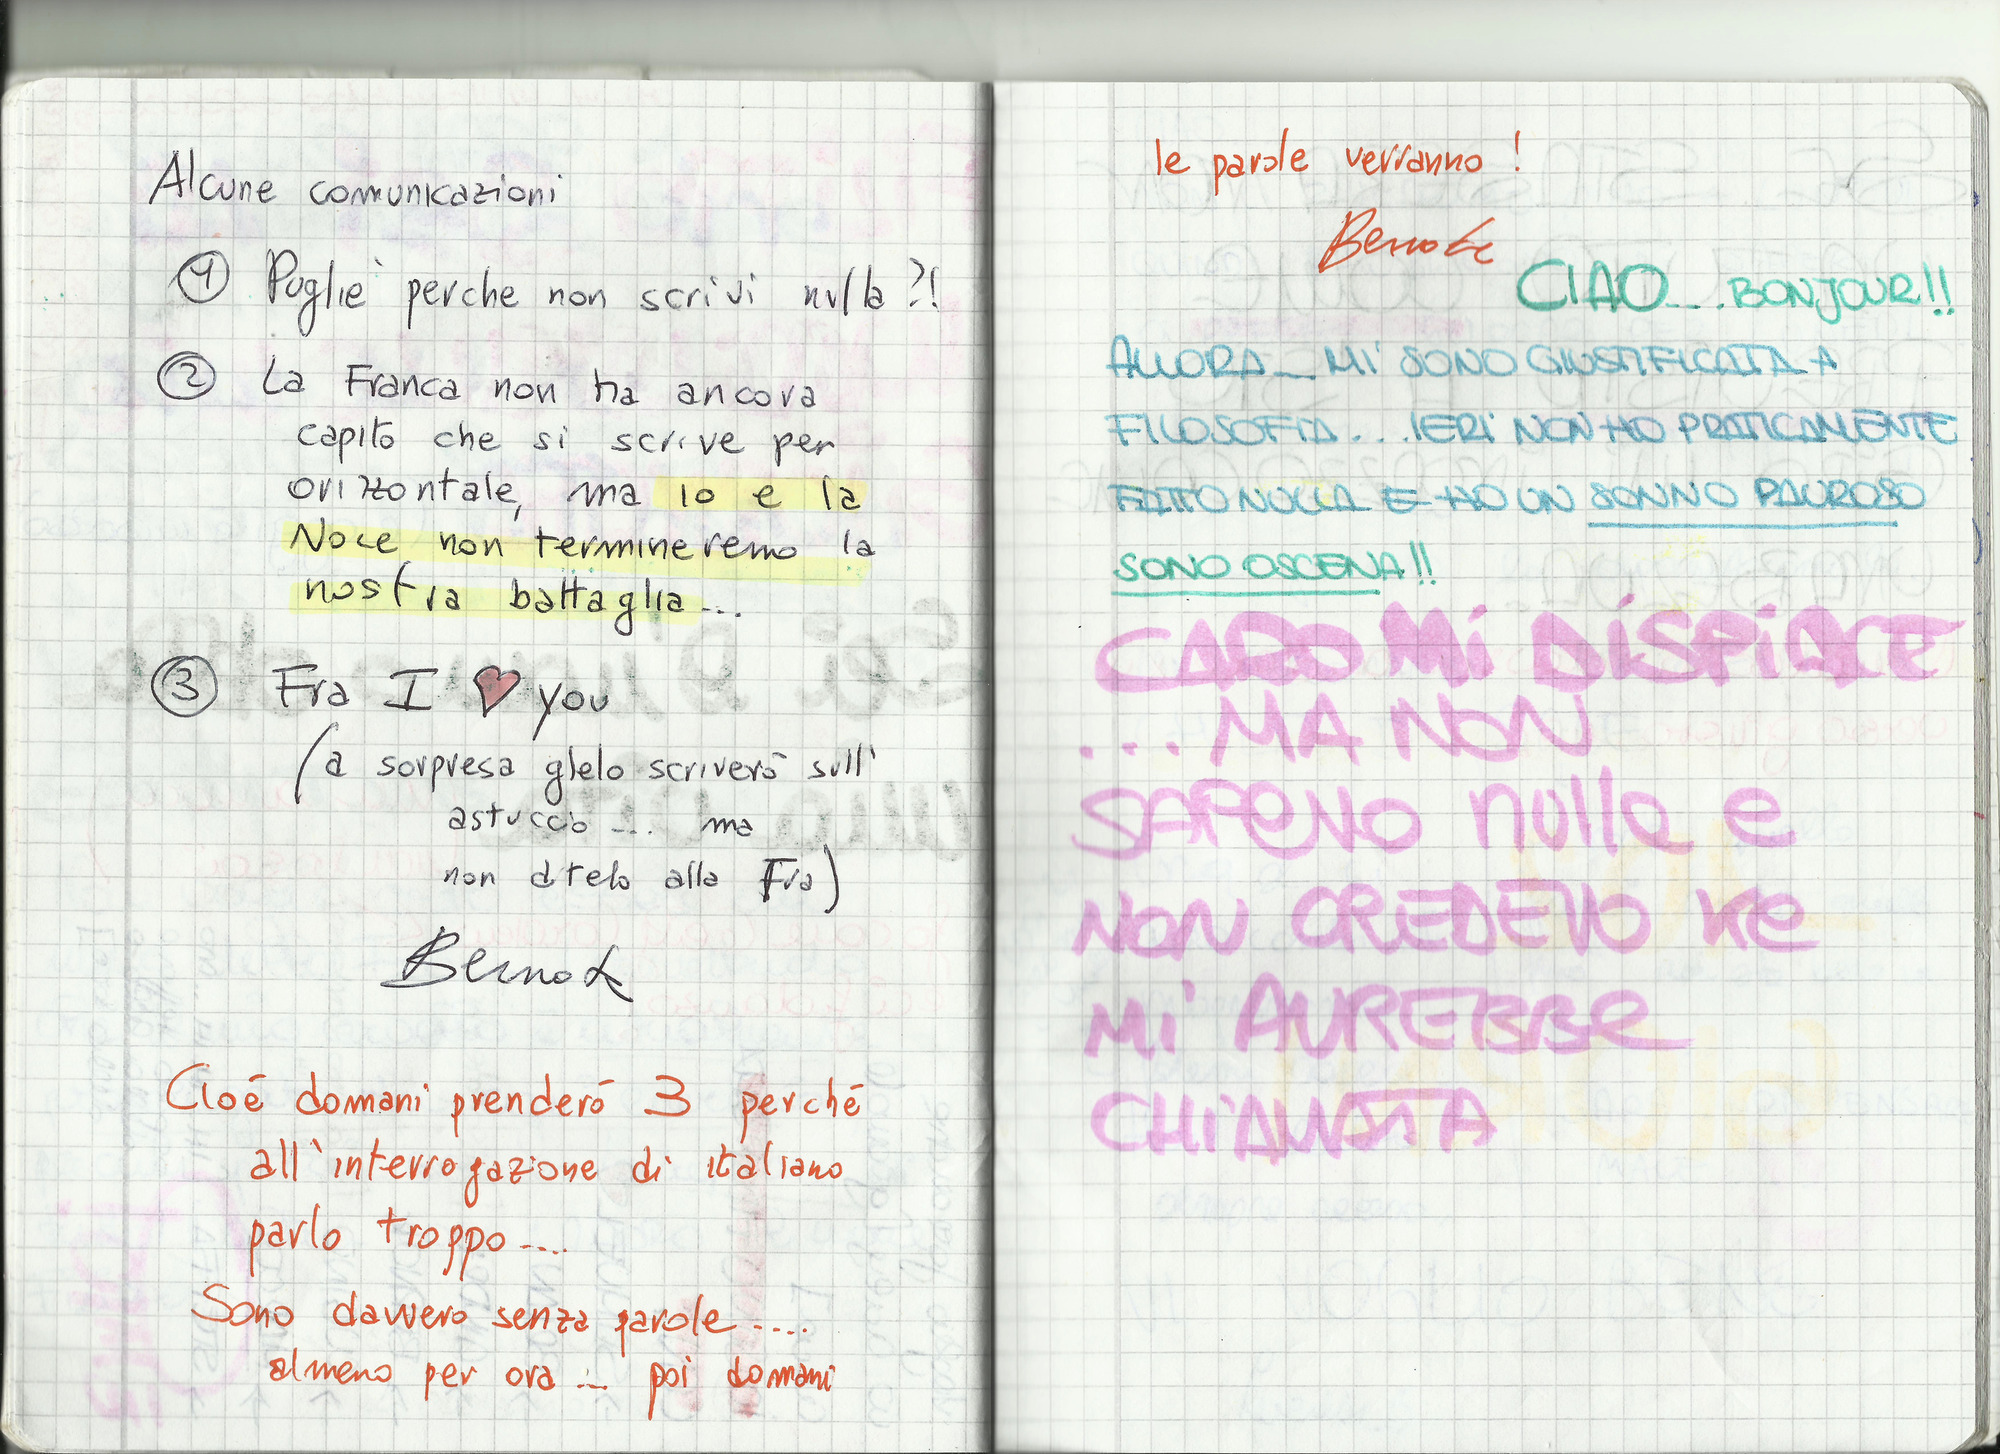 Alcune comunicazioni
① Pugliè perche non scrivi nulla?!
② La Franca non ha ancora
capito che si scrive per
orizzontale, ma io e la
Noce non termineremo la
nostra battaglia...
③ Fra I ♥ you
(a sorpresa glielo scriverò sull'
astuccio .... ma
non ditelo alla Fra)
Cioé domani prenderó 3 perché
all'interrogazione di italiano
parlo troppo....
Sono davvero senza parole ....
almeno per ora ... poi domani
le parole verranno!
CIAO.... BONJOUR!!
ALLORA... MI SONO GIUSTIFICATA A
FILOSOFIA... IERI NON HO PRATICAMENTE
FATTO NULLA E HO UN SONNO PAUROSO
SONO OSCENA!!
CARO MI DISPIACE
... MA NON
SAPEVO nulla e
NON CREDEVO Ke
Mi AVREBBE
CHIAMATA